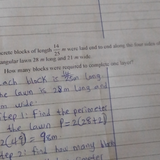 ement blocks of length 14/25 m were laid end to end along the four sides o
angular lawn 28 m long and 21 m wide.
How many blocks were required to complete this layer?
ach block is long
he lawn is 28m long and
m wide
tep 1: Find the perimeter
the lawn P = 2(28+21)
2(49) = 98m
tep 2: find how many bloc